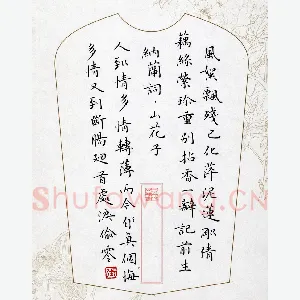 風絮飄殘已化萍泥蓮剛倩
藕絲縈珍重別拈香瓣記前生
納蘭詞·山花子
人到情多情轉薄而今真個悔
多情又到斷腸迴首處淚偷零
Shufawang.CN